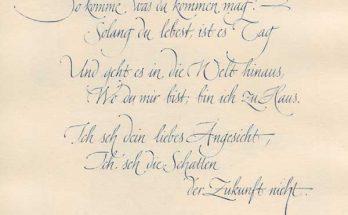 So komme, was da kommen mag!
Solang du lebest, ist es Tag
Und geht es in die Welt hinaus,
Wo du mir bist, bin ich zu Haus.
Ich seh dein liebes Angesicht,
Ich seh die Schatten
der Zukunft nicht.